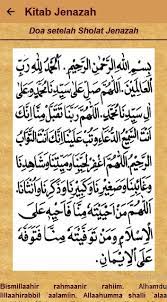 Kitab Jenazah
Doa setelah Sholat Jenazah
بِسْمِ اللهِ الرَّحْمٰنِ الرَّحِيْمِ. اَلْحَمْدُ لِلّٰهِ رَبِّ
الْعَالَمِيْنَ. اَللّٰهُمَّ صَلِّ عَلَى سَيِّدِنَا مُحَمَّدٍ وَعَلَى
اٰلِ سَيِّدِنَا مُحَمَّدٍ. اَللّٰهُمَّ رَبَّنَا تَقَبَّلْ مِنَّا اِنَّكَ
السَّمِيْعُ الدُّعَاءِ وَتُبْ عَلَيْنَا اِنَّكَ اَنْتَ التَّوَّابُ
الرَّحِيْمُ. اَللّٰهُمَّ اغْفِرْ لِحَيِّنَا وَمَيِّتِنَا وَشَاهِدِنَا
وَغَائِبِنَا وَصَغِيْرِنَا وَكَبِيْرِنَا وَذَكَرِنَا وَاُنْثَانَا
اَللّٰهُمَّ مَنْ اَحْيَيْتَهُ مِنَّا فَاَحْيِهِ عَلَى
الْاِسْلَامِ وَمَنْ تَوَفَّيْتَهُ مِنَّا فَتَوَفَّهُ
عَلَى الْاِيْمَانِ.
Bismillaahir rahmaanir rahiim. Alhamdu
lillaahirabbil aalamiin. Allaahumma shalli alaa